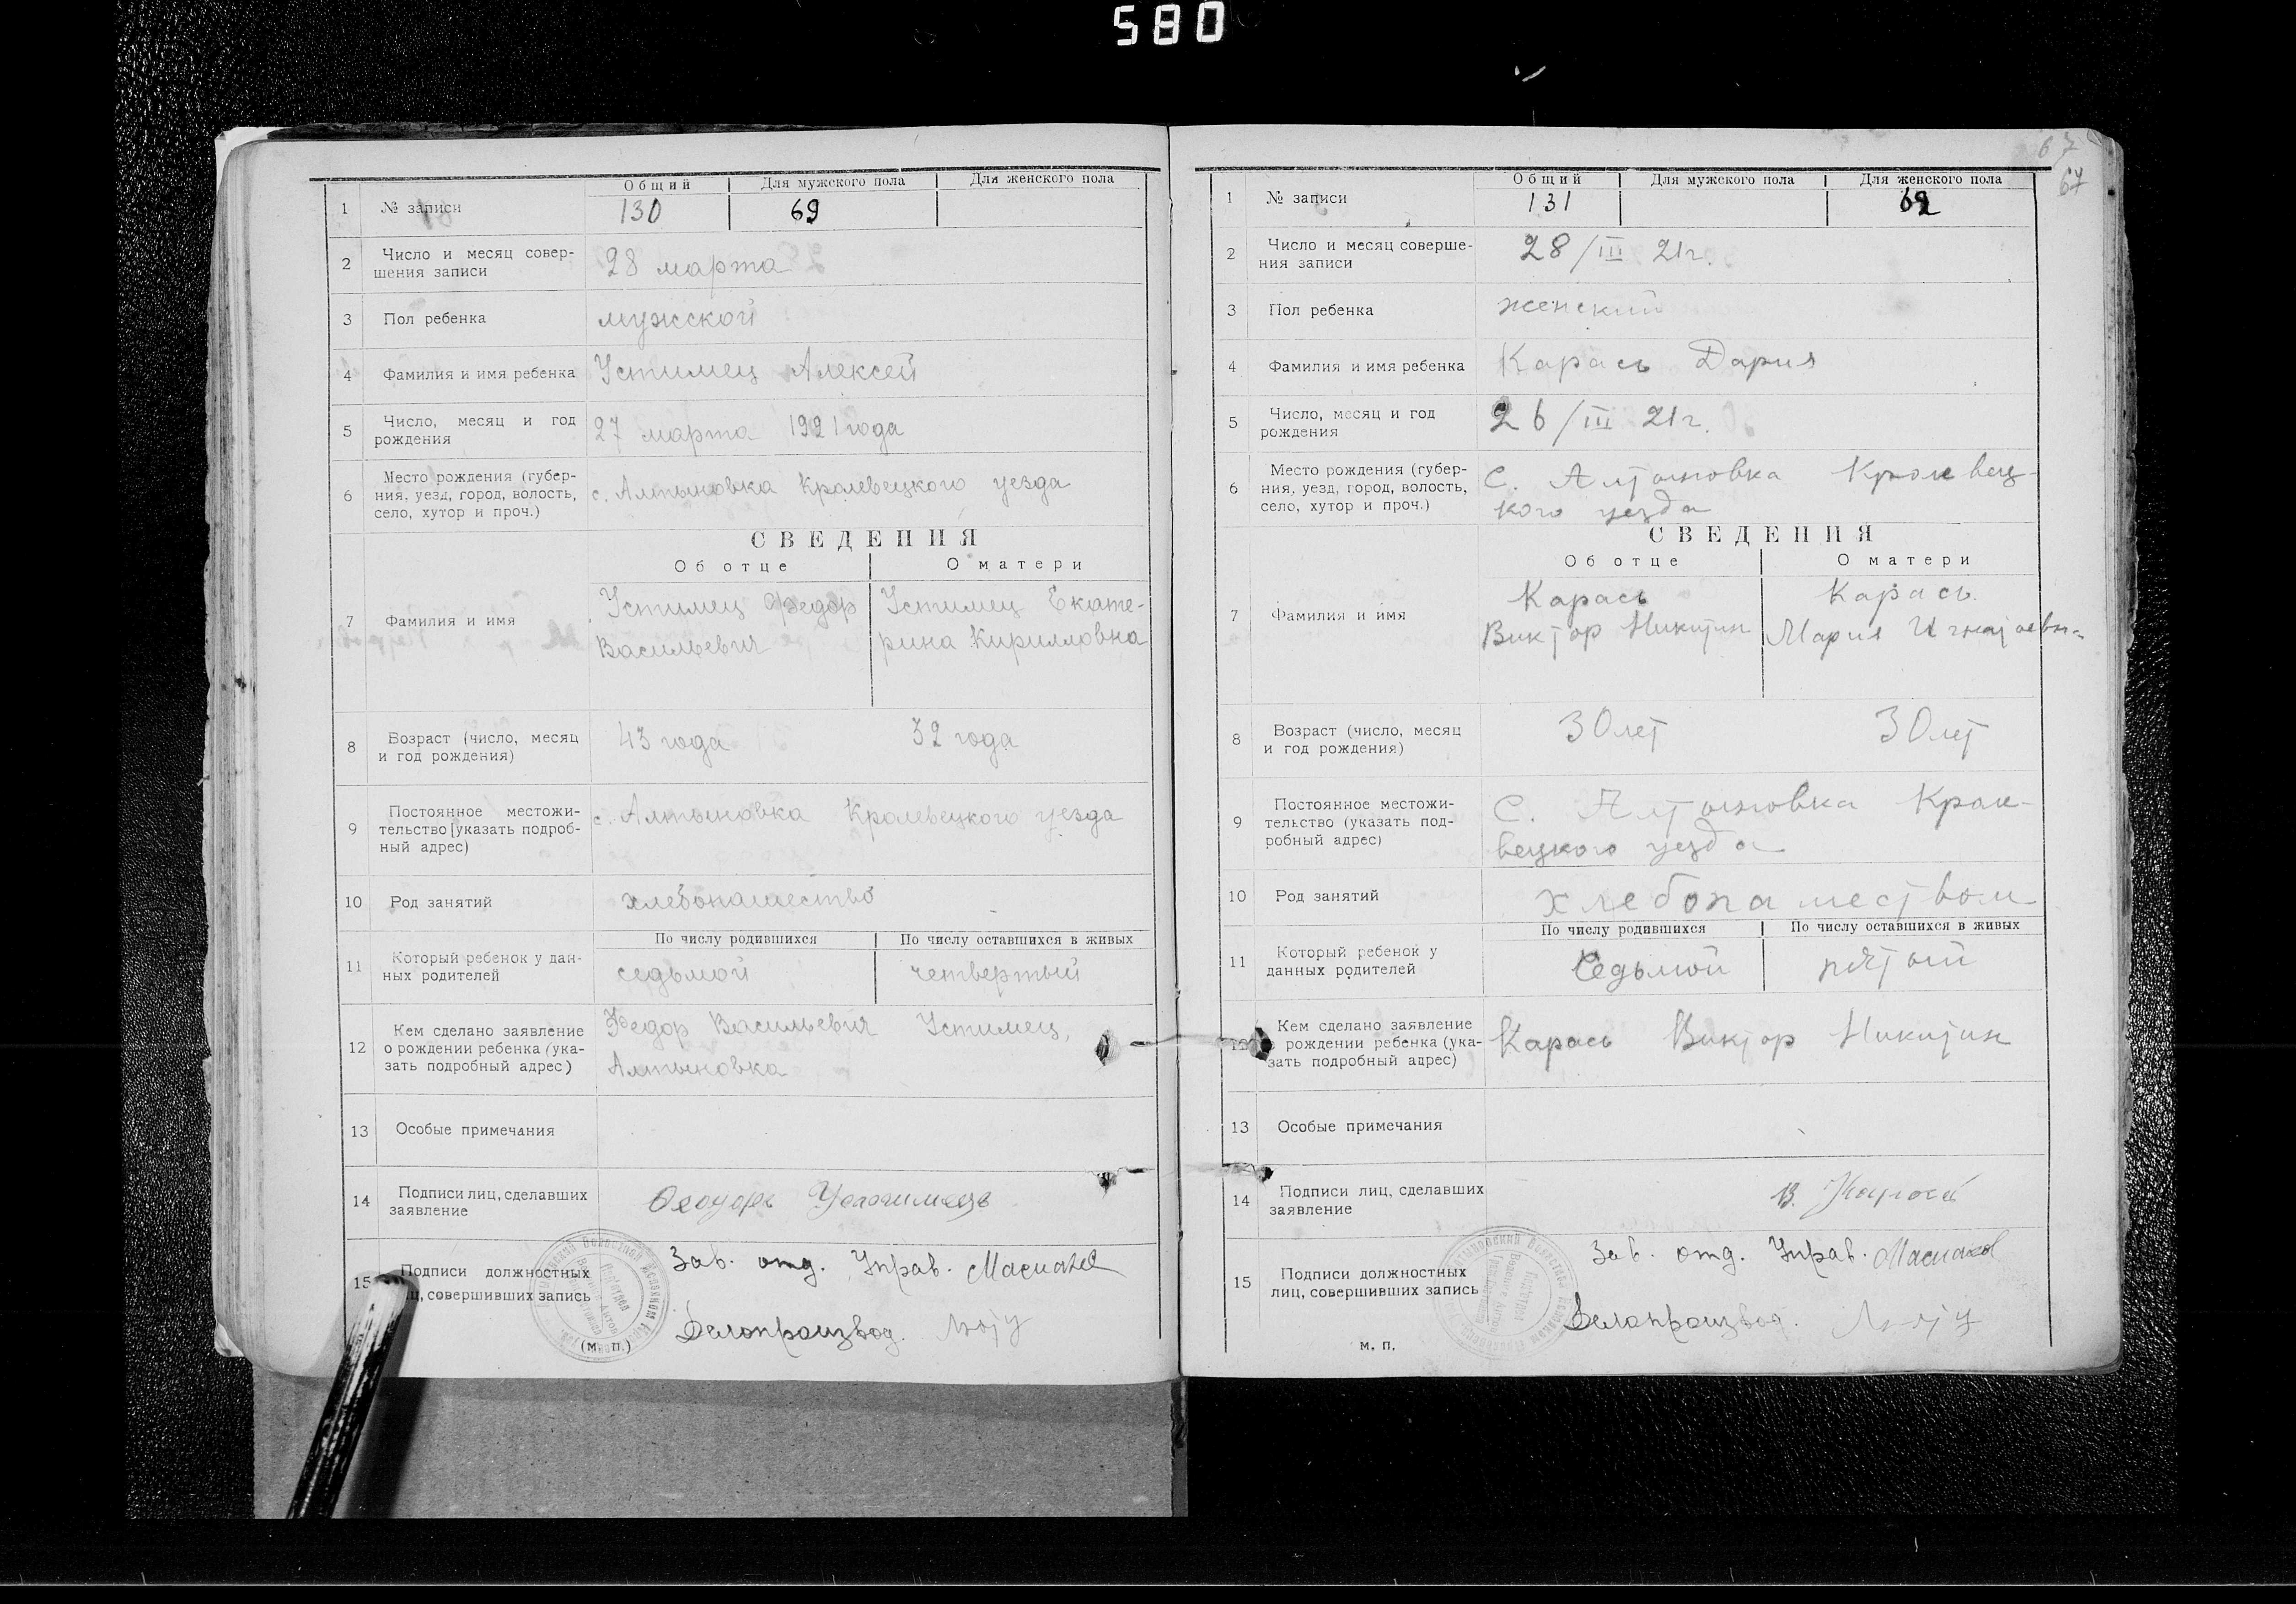 580
67
67
Общий Для мужского пола Для женского пола
1 № записи 130 69
2 Число и месяц совер-
шения записи 28 марта
3 Пол ребенка мужской
4 Фамилия и имя ребенка Устимец Алексей
5 Число, месяц и год
рождения 27 марта 1921 года
6 Место рождения (губер-
ния, уезд, город, волость,
село, хутор и проч.) с. Алтыновка Кролевецкого уезда
СВЕДЕНИЯ
Об отце О матери
7 Фамилия и имя
Устимец Федор Устимец Екате-
Васильевич рина Кирилловна
8 Возраст (число, месяц
и год рождения) 43 года 32 года
9 Постоянное местожи-
тельство (указать подроб-
ный адрес) с. Алтыновка Кролевецкого уезда
10 Род занятий хлебопашество
По числу родившихся По числу оставшихся в живых
11 Который ребенок у дан-
ных родителей седьмой четвертый
12 Кем сделано заявление
о рождении ребенка (ука-
зать подробный адрес)
Федор Васильевич Устимец,
Алтыновка
13 Особые примечания
14 Подписи лиц, сделавших
заявление
15 Подписи должностных
лиц, совершивших запись
Зав. отд. Управ.
Делопроизвод.
(м. п.)
Общий Для мужского пола Для женского пола
1 № записи 131 62
2 Число и месяц соверше-
ния записи 28/III 21 г.
3 Пол ребенка женский
4 Фамилия и имя ребенка Карась Дария
5 Число, месяц и год
рождения 26/III 21 г.
6 Место рождения (губер-
ния, уезд, город, волость,
село, хутор и проч.)
С. Алтыновка Кролевец-
кого уезда
СВЕДЕНИЯ
Об отце О матери
7 Фамилия и имя
Карась Карась
Виктор Никитин Мария
8 Возраст (число, месяц
и год рождения) 30 лет 30 лет
9 Постоянное местожи-
тельство (указать под-
робный адрес)
С. Алтыновка Крол-
вецкого уезда
10 Род занятий хлебопашеством
По числу родившихся По числу оставшихся в живых
11 Который ребенок у
данных родителей Седьмой пятый
12 Кем сделано заявление
о рождении ребенка (ука-
зать подробный адрес) Карась Виктор Никитин
13 Особые примечания
14 Подписи лиц, сделавших
заявление В. Карась
15 Подписи должностных
лиц, совершивших запись
Зав. отд. Управ.
Делопроизвод.
м. п.